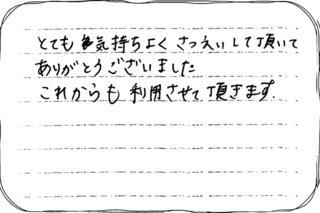 とても気持ちよく さつえいして頂いて
ありがとうございました
これからも 利用させて頂きます.